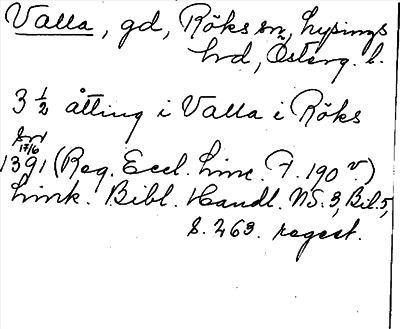 Valla, gd, Röks sn, Lysings
hrd, Österg. l.
3 ½ åtting i Valla i Röks
sn
17/6
1391 (Reg. Eccl. Linc. F. 190 v.)
Link. Bibl. Handl. NS. 3, Bil. 5,
s. 263. regest.